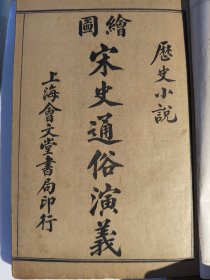 繪圖
歷史小說
宋史通俗演義
上海會文堂書局印行